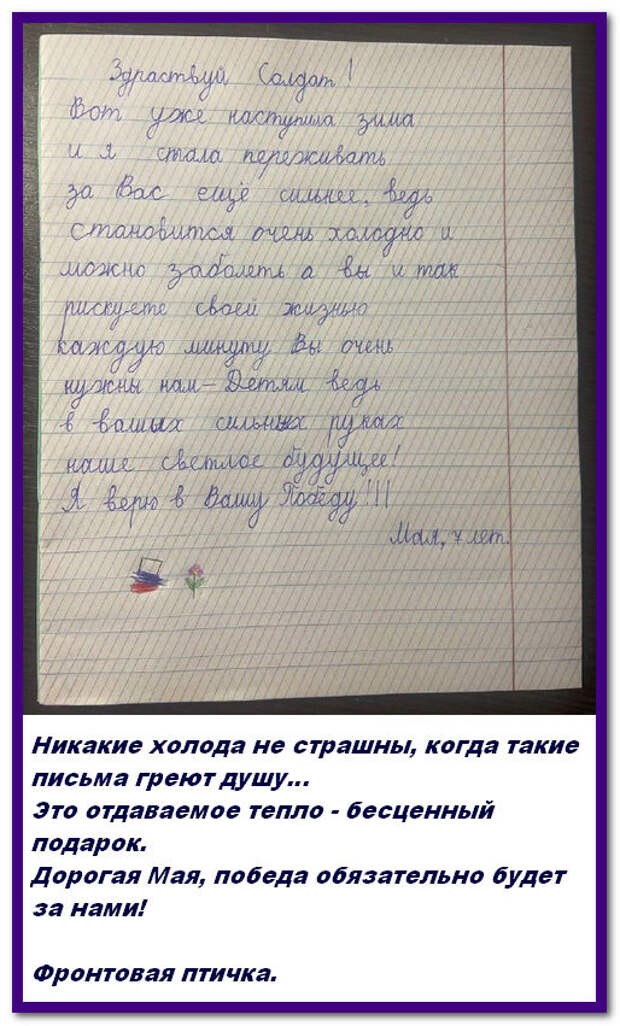 Здраствуй Солдат!
Вот уже наступила зима
и я стала переживать
за Вас ещё сильнее, ведь
становится очень холодно и
можно заболеть а вы и так
рискуете своей жизнью
каждую минуту Вы очень
нужны нам – Детям ведь
в ваших сильных руках
наше светлое будущее!
Я верю в Вашу Победу!!!
Мая, 7 лет.
Никакие холода не страшны, когда такие
письма греют душу...
Это отдаваемое тепло - бесценный
подарок.
Дорогая Мая, победа обязательно будет
за нами!
Фронтовая птичка.